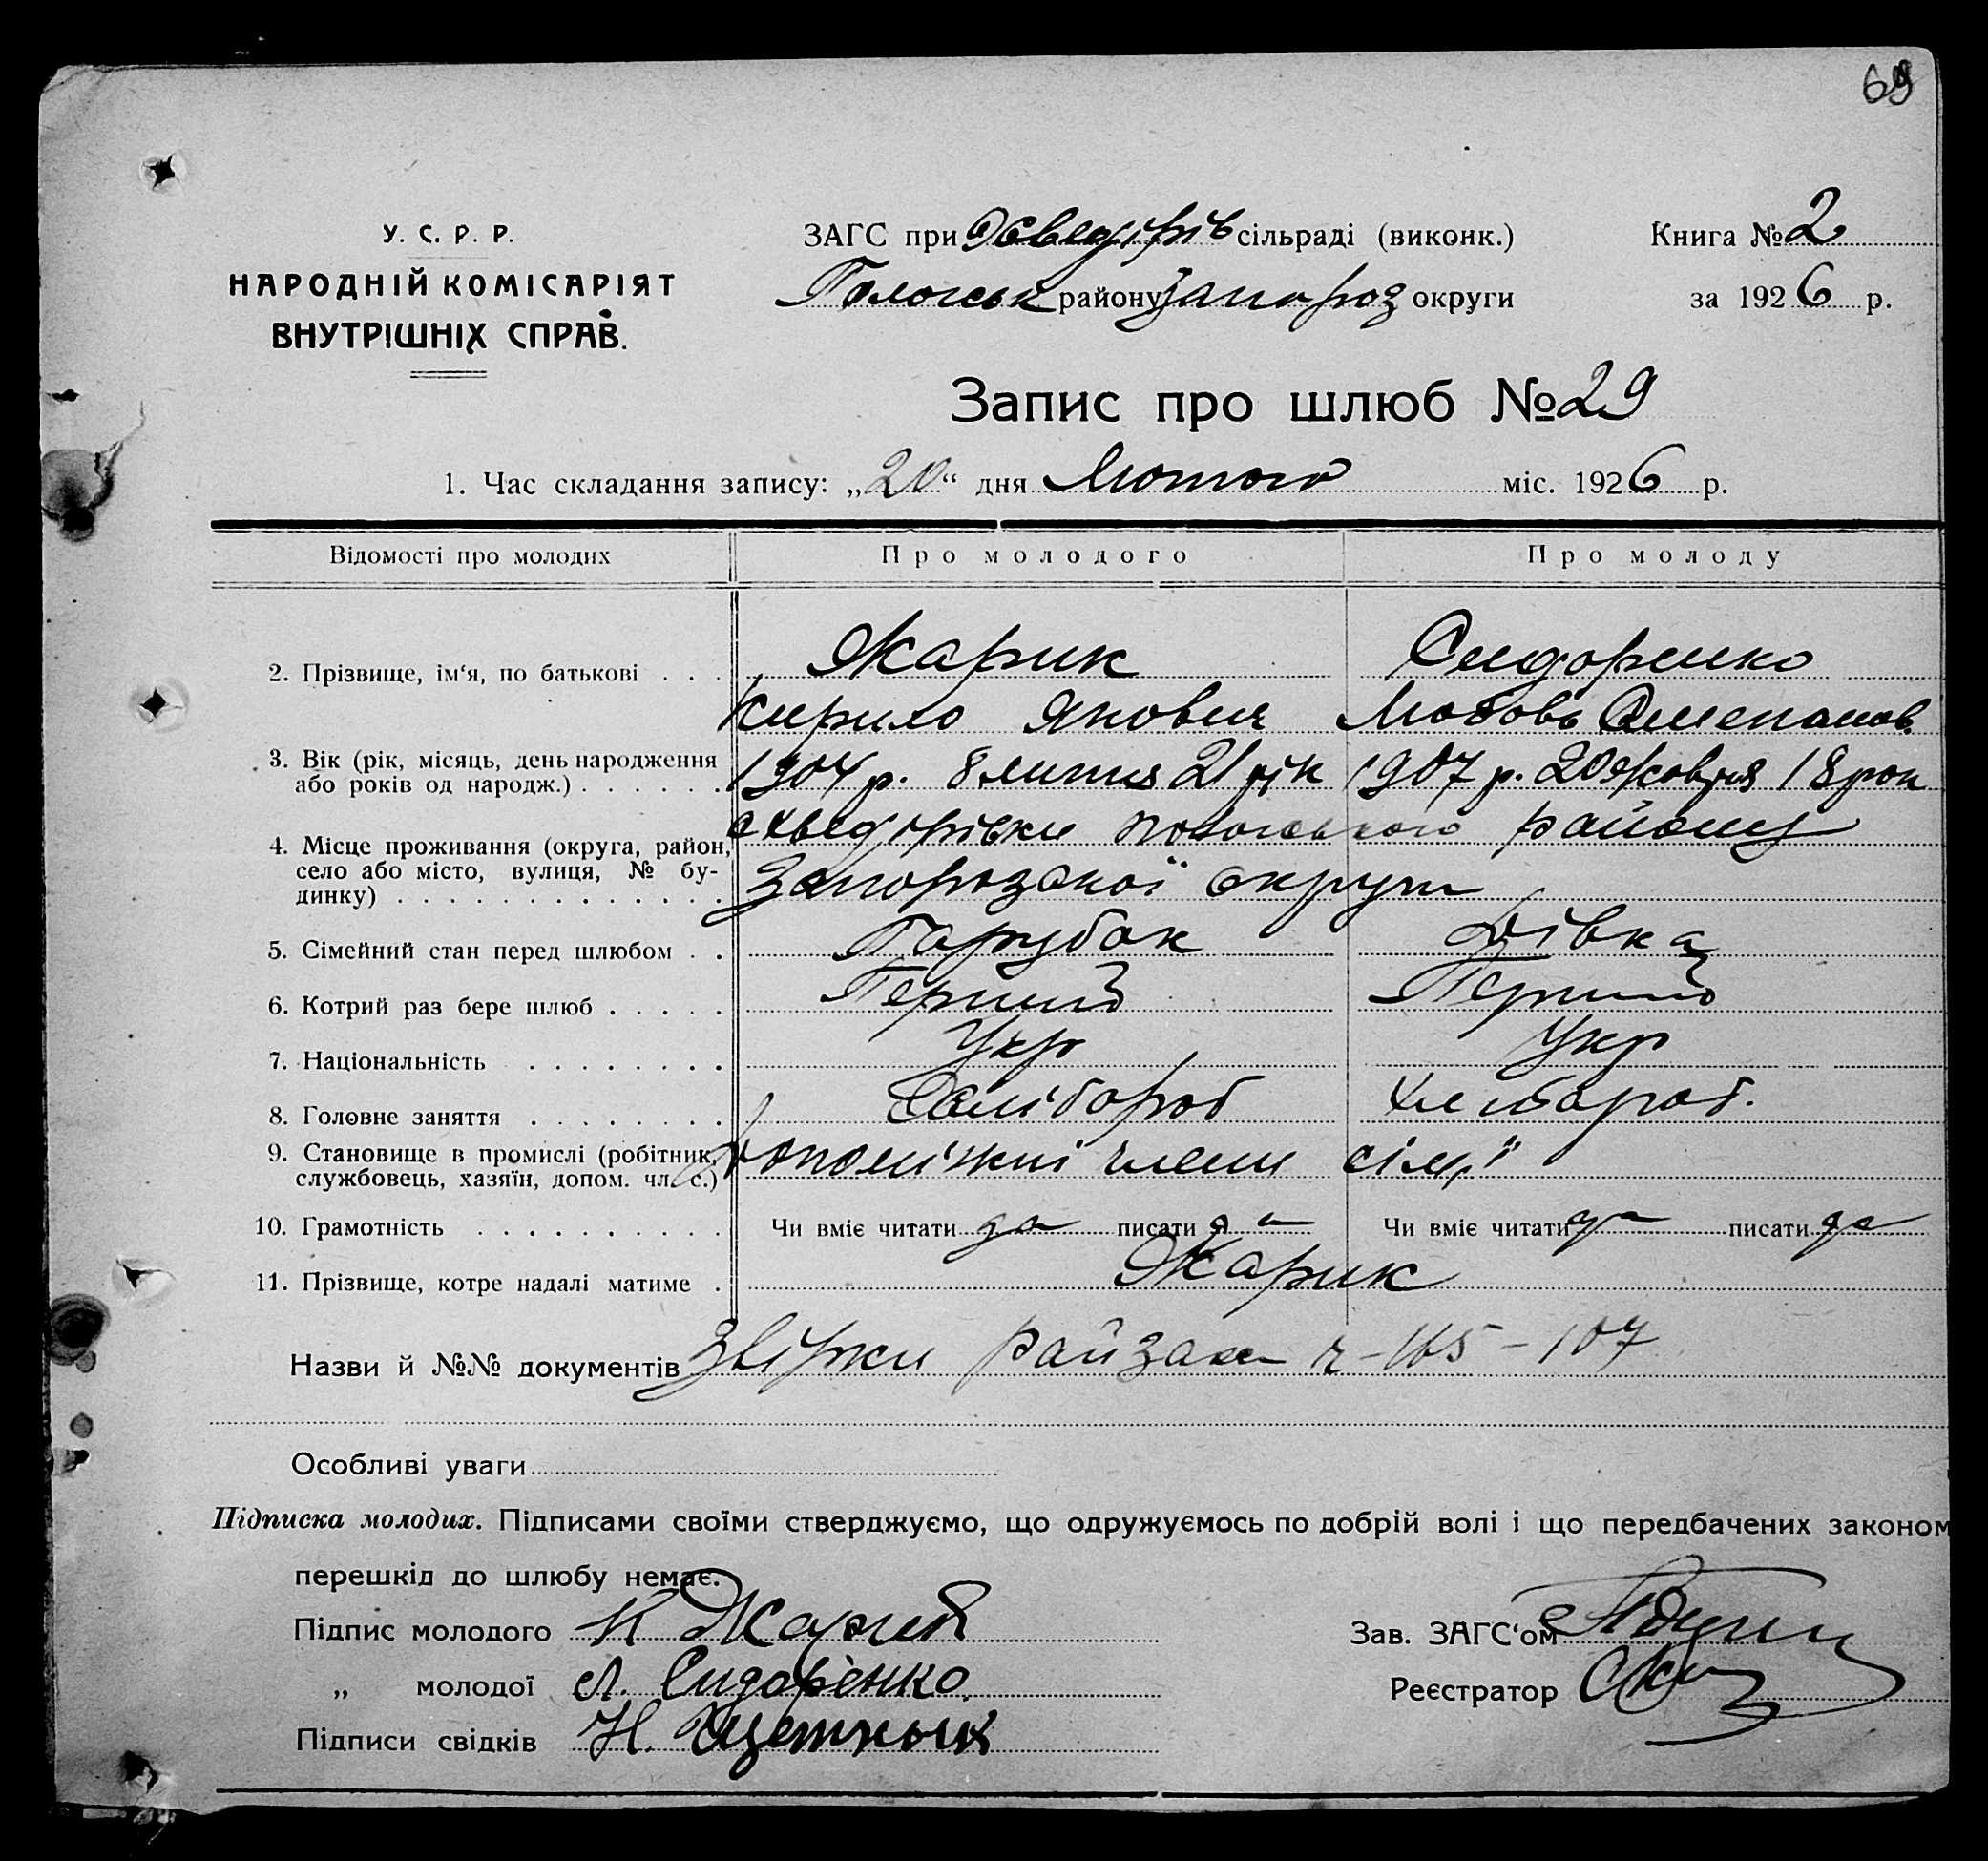 69
У. С. Р. Р.
НАРОДНІЙ КОМІСАРІЯТ
ВНУТРІШНІХ СПРАВ.
ЗАГС при Ѳеведірів сільраді (виконк.)
Пологськ району Запороз округи
Книга № 2
за 1926 р.
Запис про шлюб № 29
1. Час складання запису: „20“ дня Лютого міс. 1926 р.
Відомості про молодих Про молодого Про молоду
2. Прізвище, ім‘я, по батькові . . . Жарик Сидоренко
Кирило Якович Любовь Степанов.
3. Вік (рік, місяць, день народження
або років од народж.) . . . . . . 1904 р. 8 липня 21 рік 1907 р. 20 Жовтня 18 рок
4. Місце проживання (округа, район,
село або місто, вулиця, № бу-
динку) . . . . . . . . . . . . . Пологовського району
Запорозської округи
5. Сімейний стан перед шлюбом . . Парубок Дівка
6. Котрий раз бере шлюб . . . . . Перший Перший
7. Національність . . . . . . . . Укр Укр
8. Головне заняття . . . . . . . . Хлібороб Хлибороб.
9. Становище в промислі (робітник,
службовець, хазяїн, допом. чл. с.) допоміжні члени сімї
10. Грамотність . . . . . . . . . . Чи вміє читати да писати да Чи вміє читати да писати да
11. Прізвище, котре надалі матиме . Жарик
Назви й №№ документів Звірки Райзака ч-165-107
Особливі уваги
Підписка молодих. Підписами своїми стверджуємо, що одружуємось по добрій волі і що передбачених законом
перешкід до шлюбу немає.
Підпис молодого К Жарик
„ молодої Л. Сидоренко.
Підписи свідків Н.
Зав. ЗАГС‘ом
Реєстратор